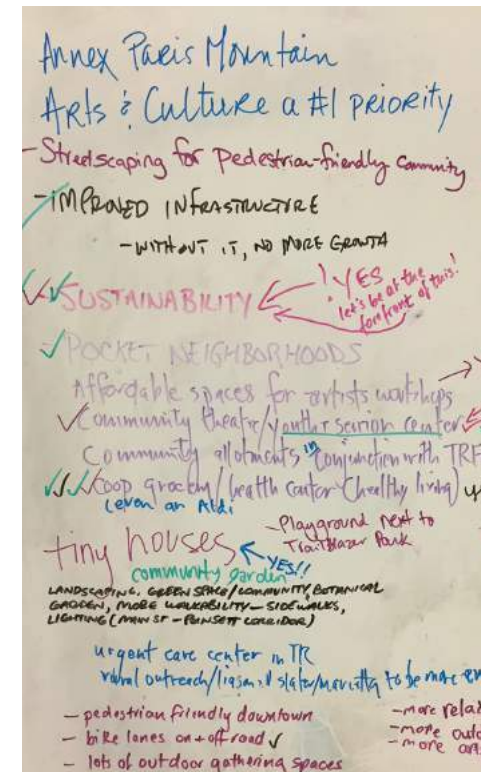 Annex Paris Mountain
Arts & Culture a #1 priority
- Streetscaping for Pedestrian-friendly Community
- IMPROVED INFRASTRUCTURE
- WITHOUT IT, NO MORE GROWTH
SUSTAINABILITY
! YES
let's be at the
forefront of this!
POCKET NEIGHBORHOODS
Affordable spaces for artists workshops
Community theatre/youth + senior center
Community allotments in conjunction with TRF
COOP grocery/health center (healthy living)
(even an Aldi
- Playground next to
Trailblazer Park
tiny houses
YES!!
community garden
LANDSCAPING, GREEN SPACE/COMMUNITY, BOTANICAL
GARDEN, MORE WALKABILITY - SIDEWALKS,
LIGHTING (MAIN ST - POINSETT CORRIDOR)
urgent care center in TR
outreach/liason slater/marietta to be more
- pedestrian friendly downtown
- bike lanes on + off road
- lots of outdoor gathering spaces
- more
- more
- more